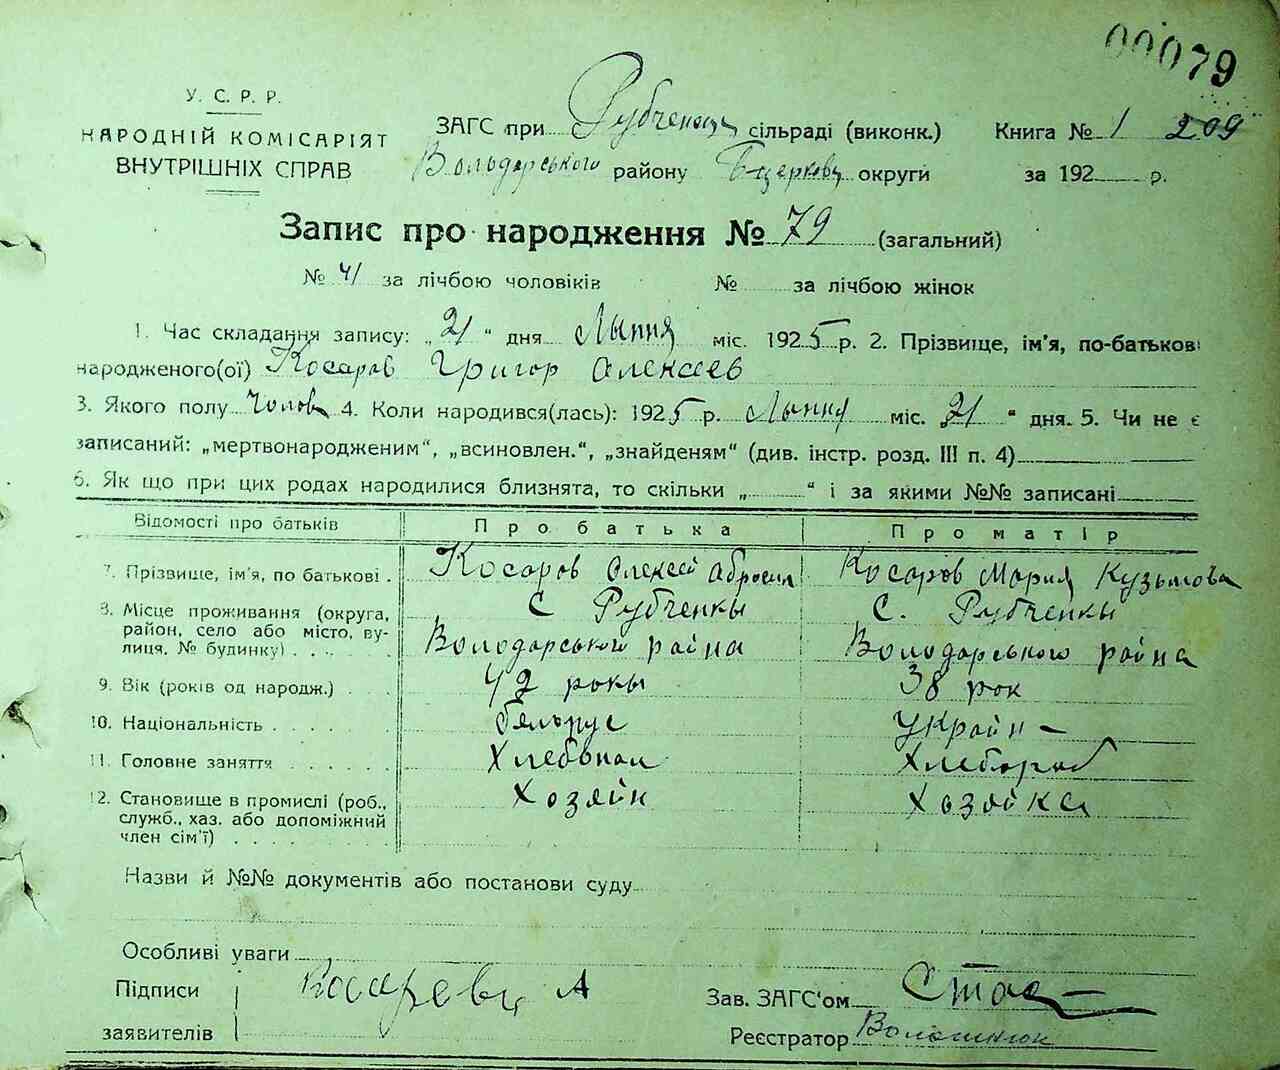 00079
У. С. Р. Р.
НАРОДНІЙ КОМІСАРІЯТ
ВНУТРІШНІХ СПРАВ
ЗАГС при Рубченськ сільраді (виконк.) Книга № 1 209
Вольдарського району Бцеркевськ округи за 192 р.
Запис про народження № 79 (загальний)
№ 41 за лічбою чоловіків № за лічбою жінок
1. Час складання запису: „21" дня Лыпня міс. 1925 р. 2. Прізвище, ім'я, по-батькові
народженого(ої) Косаров Григор Олексеев
3. Якого полу Чолов 4. Коли народився(лась): 1925 р. Лыпня міс. 21" дня. 5. Чи не є
записаний: „мертвонародженим", „всиновлен.", „знайденям" (див. інстр. розд. III п. 4)
6. Як що при цих родах народилися близнята, то скільки „ " і за якими №№ записані
Відомості про батьків Про батька Про матір
7. Прізвище, ім'я, по батькові . Косаров Олексей Косаров Мария Кузьмова
8. Місце проживання (округа, С Рубченкы С. Рубченкы
район, село або місто, ву-
лиця, № будинку) . . . . Володарського района Володарського района
9. Вік (років од народж.) . . 42 рокы 38 рок
10. Національність . . . . . бельрус Украйн
11. Головне заняття . . . . . Хлебороб
12. Становище в промислі (роб., Хозяйн Хозяйка
служб., хаз. або допоміжний
член сім'ї) . . . . . . . .
Назви й №№ документів або постанови суду
Особливі уваги
Підписи Косарева А Зав. ЗАГС'ом
заявителів Реєстратор